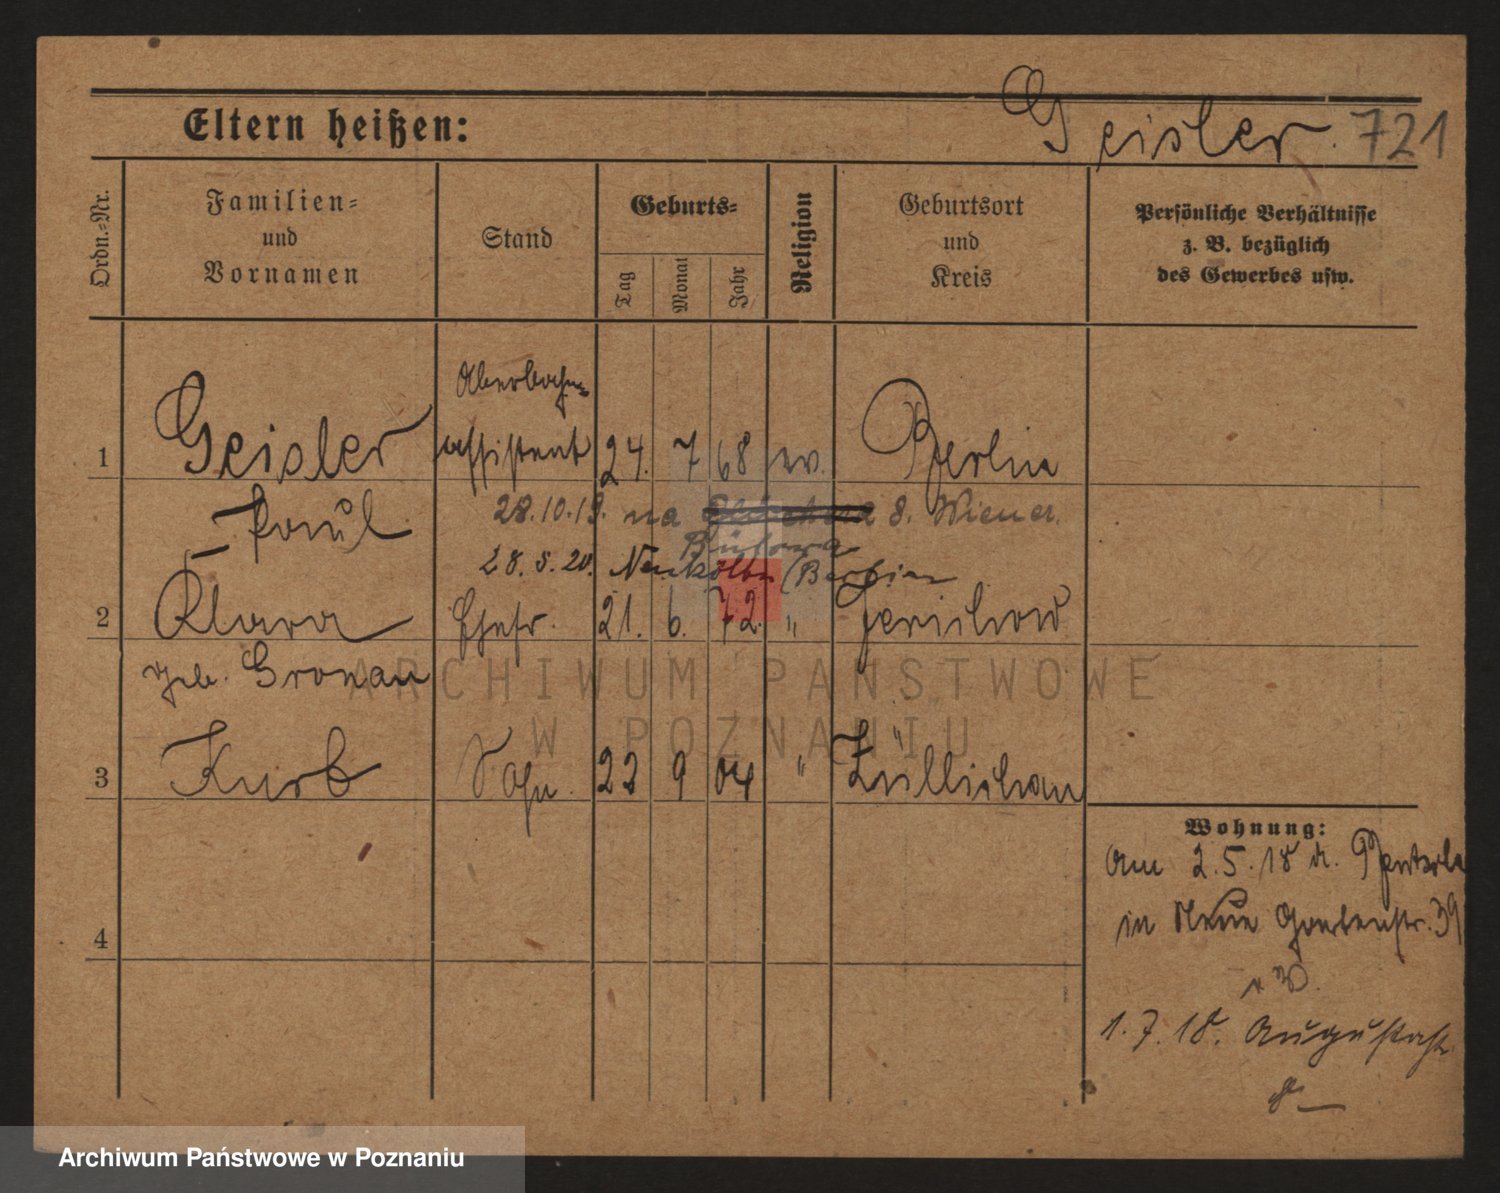 Eltern heißen:
Geisler. 721
Ordn.-Nr.
Familien-
und
Vornamen
Stand
Geburts-
Tag
Monat
Jahr
Religion
Geburtsort
und
Kreis
Persönliche Verhältnisse
z. B. bezüglich
des Gewerbes usw.
Oberbahn-
1 Geisler assistent 24. 7 68 ev. Berlin
Paul
28.10.19. na 8. Wiener.
28. 5. 20. Neukölln (Berlin
2 Klara Ehefr. 21. 6. 72. " Jerichow
geb. Gronau
3 Kurt Sohn. 22 9 04 " Züllichau
4
Wohnung:
Am 2.5.18 v.
in Neue Gartenstr. 39
1.7.18. Augustastr
8
ARCHIWUM PAŃSTWOWE
W POZNANIU
Archiwum Państwowe w Poznaniu